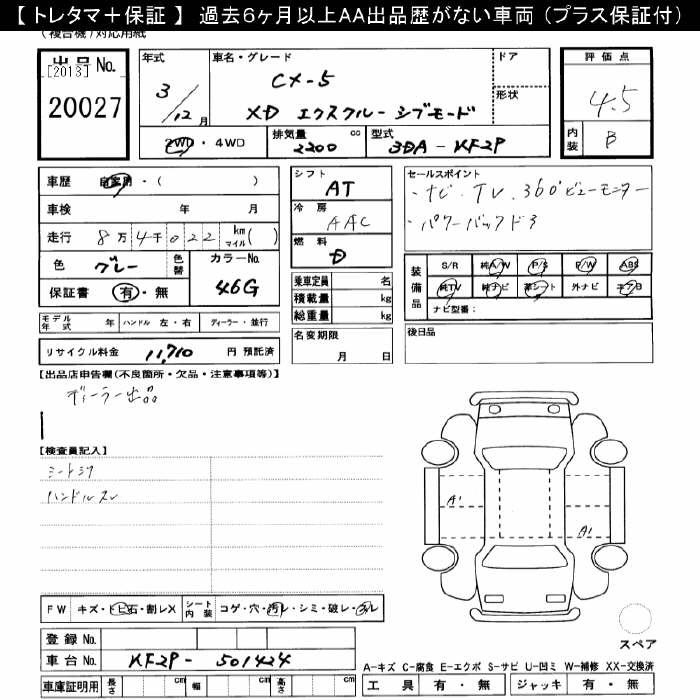 【 トレタマ＋保証 】 過去6ヶ月以上AA出品歴がない車両（プラス保証付）
（複合機）対応用紙
出品 No.
[2013]
20027
年式
3/12月
車名・グレード
CX-5
XD エクスクルーシブモード
ドア
形状
評価点
4.5
内装
B
2WD・4WD
排気量 2200 cc
型式 3DA-KF2P
車歴 自家用・（　　）
車検 年 月
走行 8万4千022 km マイル（ ）
色 グレー
色替
カラーNo. 46G
保証書 有・無
シフト
AT
冷房
AAC
燃料
D
乗車定員 名
積載量 kg
総重量 kg
セールスポイント
・ナビ. TV. 360°ビューモニター
・パワーバックドア
装備品
S/R 純A/W P/S P/W ABS
純TV 純ナビ 革シート 外ナビ エアB
ナビ型番：
モデル年式 年 ハンドル 左・右 ディーラー・並行
リサイクル料金 11,710 円 預託済
名変期限
月 日
後日品
【出品店申告欄(不良箇所・欠品・注意事項等)】
ディーラー出品
【検査員記入】
シートシワ
ハンドルスレ
A1
A1
FW キズ・トビ石・割レX
シート内装 コゲ・穴・汚レ・シミ・破レ・スレ
登録 No.
車台 No. KF2P-501424
車庫証明用 長さ cm 幅 cm 高さ cm
スペア
A-キズ C-腐食 E-エクボ S-サビ U-凹ミ W-補修 XX-交換済
工具 有・無 ジャッキ 有・無